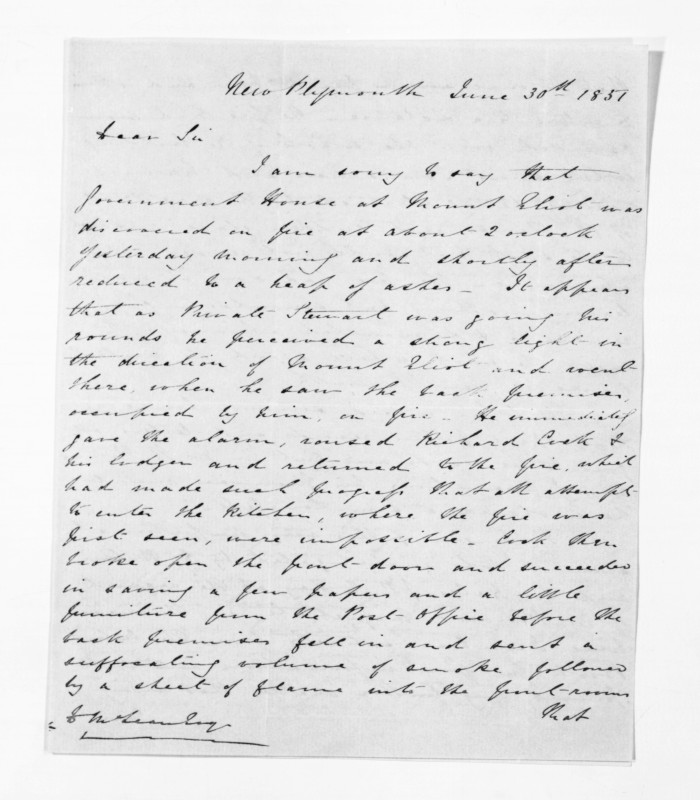 New Plymouth June 30th 1851
Dear Sir
I am sorry to say that
Government House at Mount Eliot was
discovered on fire at about 2 oclock
yesterday morning and shortly after
reduced to a heap of ashes - It appears
that as Private Stewart was going his
rounds he perceived a strong light in
the direction of Mount Eliot and went
there, when he saw the back premises,
occupied by him, on fire - He immediately
gave the alarm, roused Richard Cook &
his lodger and returned to the fire, which
had made such progress that all attempt
to enter the kitchen, where the fire was
first seen, were impossible - Cook then
broke open the front door and succeeded
in saving a few papers and a little
furniture from the Post Office before the
back premises fell in and sent a
suffocating volume of smoke followed
by a sheet of flame into the front-rooms
That
D McLean Esq